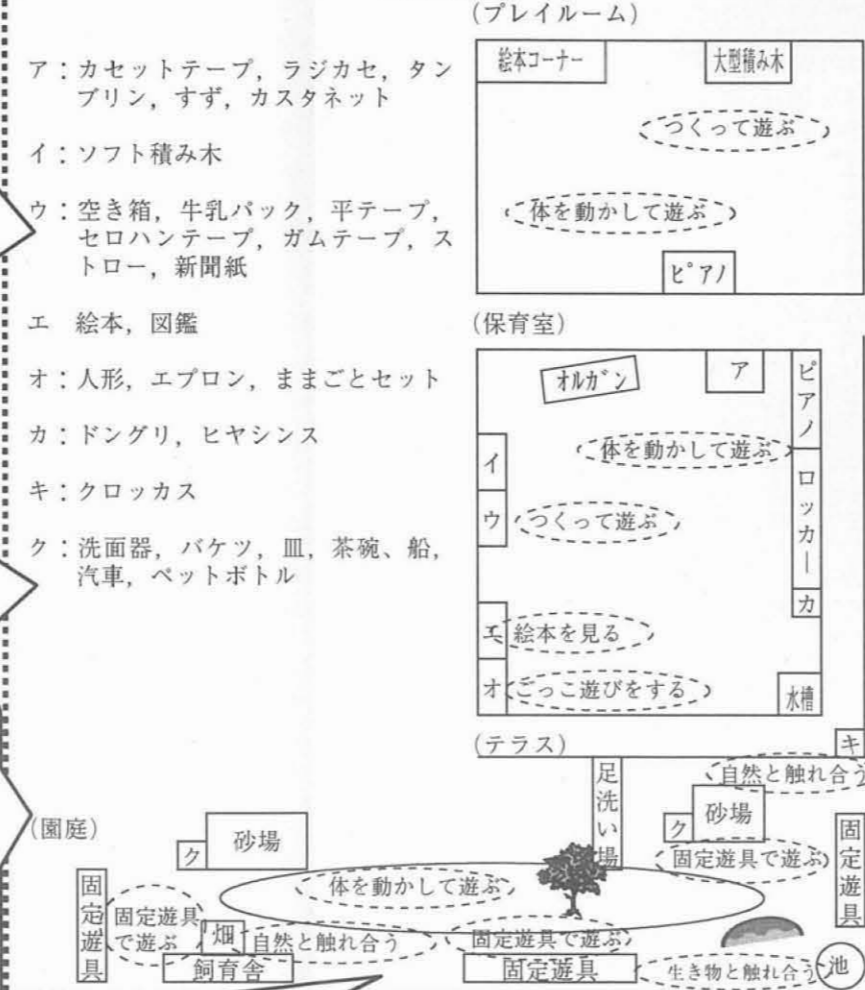 ア：カセットテープ，ラジカセ，タン
ブリン，すず，カスタネット
イ：ソフト積み木
ウ：空き箱，牛乳パック，平テープ，
セロハンテープ，ガムテープ，ス
トロー，新聞紙
エ　絵本，図鑑
オ：人形，エプロン，ままごとセット
カ：ドングリ，ヒヤシンス
キ：クロッカス
ク：洗面器，バケツ，皿，茶碗、船，
汽車，ペットボトル
(プレイルーム)
絵本コーナー
大型積み木
つくって遊ぶ
体を動かして遊ぶ
ピアノ
(保育室)
オルガン
ア
ピアノ
体を動かして遊ぶ
イ
ロッカー
ウ
つくって遊ぶ
カ
エ
絵本を見る
オ
ごっこ遊びをする
水槽
(テラス)
キ
足洗い場
自然と触れ合う
(園庭)
ク
砂場
ク
砂場
固定遊具
固定遊具で遊ぶ
固定遊具
体を動かして遊ぶ
固定遊具
で遊ぶ
畑
自然と触れ合う
固定遊具で遊ぶ
飼育舎
固定遊具
生き物と触れ合う
池